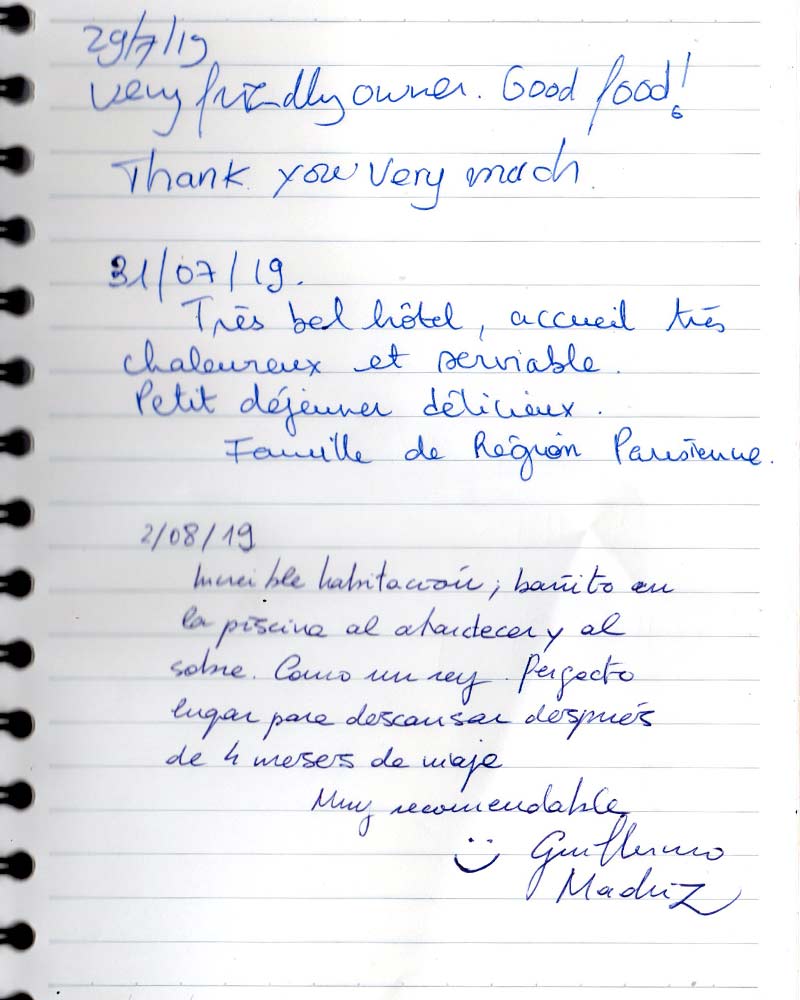 29/7/19
Very friendly owner. Good food!
Thank you very much.
31/07/19.
Très bel hôtel, accueil très
chaleureux et serviable.
Petit déjeuner délicieux.
Famille de Région Parisienne.
2/08/19
Increible habitación; bañito en
la piscina al atardecer y al
sobre. Como un rey. Perfecto
lugar para descansar después
de 4 meses de viaje
Muy recomendable
Guillermo
Madriz